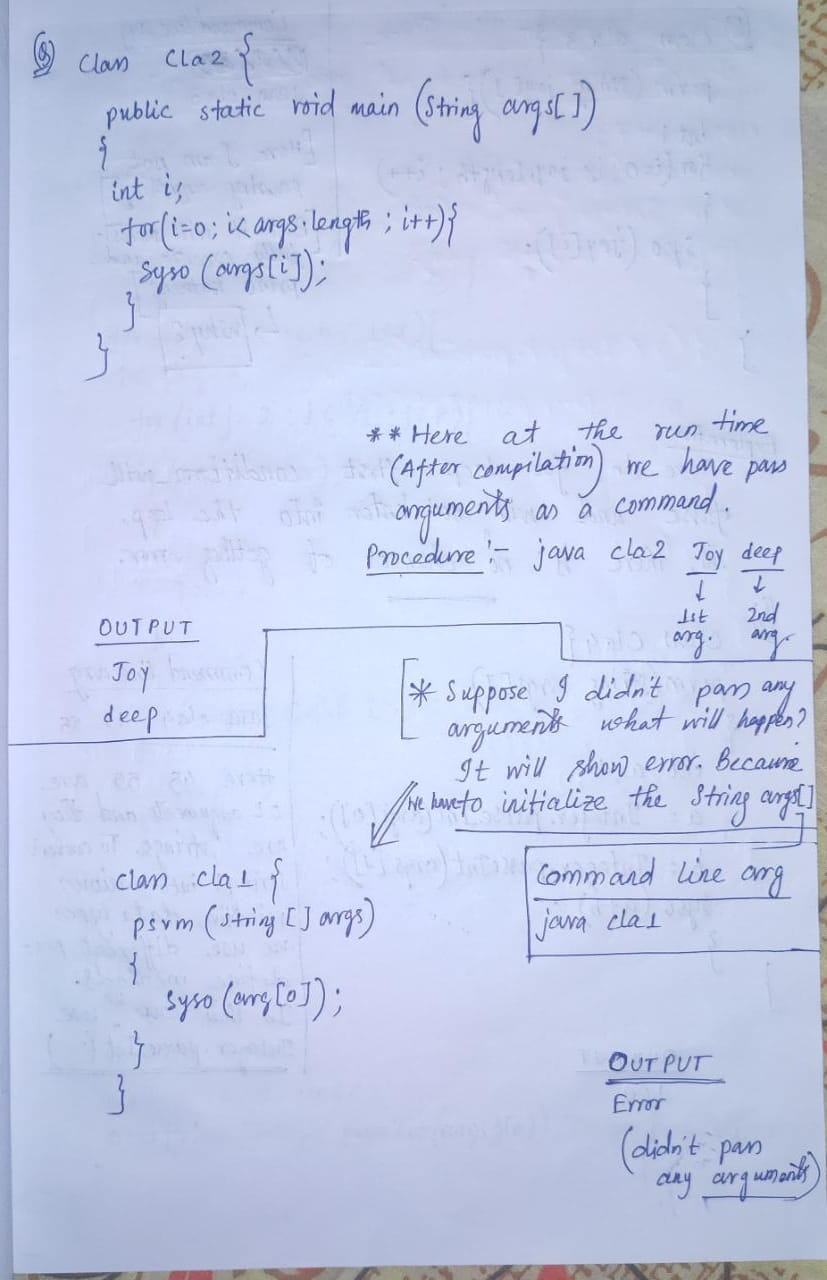 (Q) Class Cla2 {
public static void main (String args[])
{
int i;
for(i=0; i< args.length ; i++){
Syso (args[i]);
}
}
** Here at the run time
(After compilation) we have pass
arguments as a command.
Procedure :- java cla2 Joy deep
↓ ↓
1st 2nd
arg. arg.
OUTPUT
Joy
deep
* Suppose I didn't pass any
arguments what will happen?
It will show error. Because
we have to initialize the String args[]
class cla1 {
psvm (String [] args)
{
Syso (arg[0]);
}
}
Command line arg
java cla1
OUTPUT
Error
(didn't pass
any arguments)